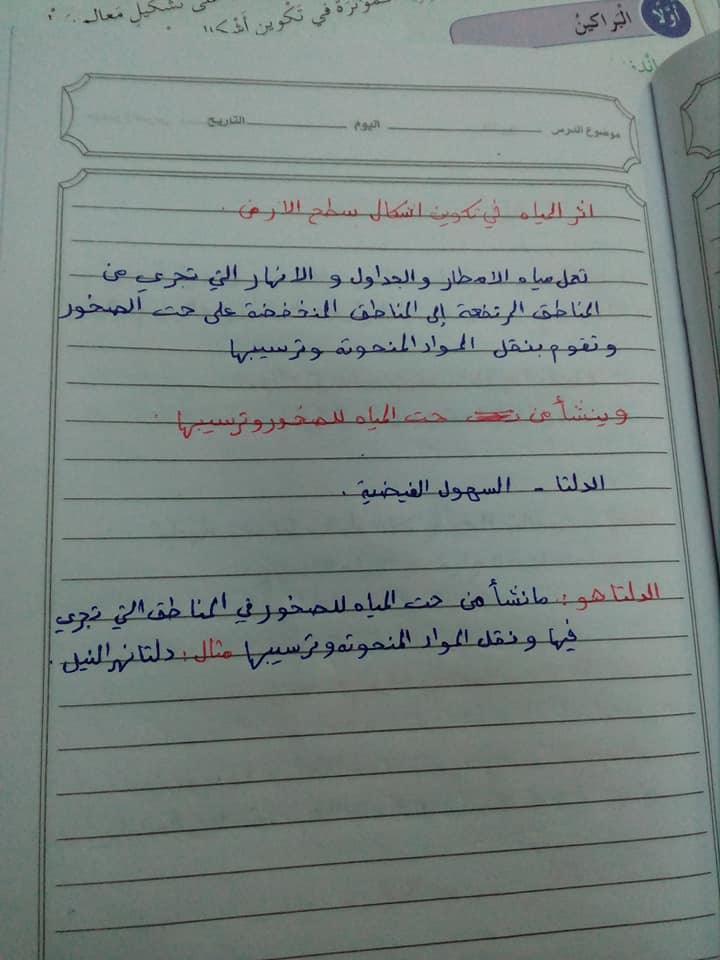 في تكوين
تشكيل معالم
أولا
البراكين
موضوع الدرس
اليوم
التاريخ
اثر المياه في تكوين اشكال سطح الارض .
تعمل مياه الامطار والجداول و الانهار التي تجري من
المناطق المرتفعة إلى المناطق المنخفضة على حت الصخور
و تقوم بنقل المواد المنحوته وترسيبها
وينشأ من حت المياه للصخور وترسيبها :
الدلتا - السهول الفيضية .
الدلتا هو : مانشأ من حت المياه للصخور في المناطق التي تجري
فيها و نقل المواد المنحوته وترسيبها مثال : دلتا نهر النيل .